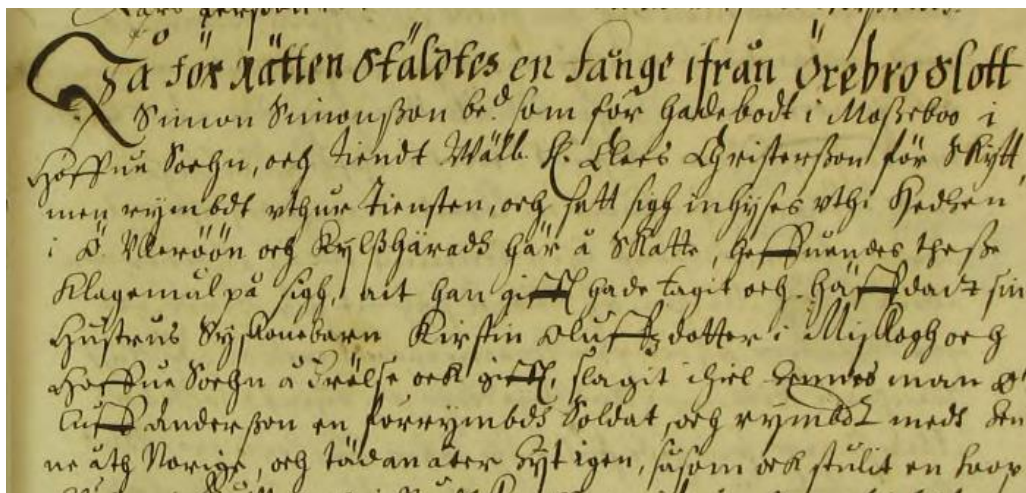 Så för Rätten Stäldtes en fånge ifrån Örebro Slott
Simon Simonsson be:d som för hade bodt i Mosseboo i
Hoffua Sochn, och tiendt Wälb. H. Claes Christersson för Skytt
men rymbdt vthur tiensten, och satt sigh inhyses vthi Hedhen
i Ö. och härads här å Skatte, haffuendes thesse
Klagemål på sigh, att han gifft hade tagit och häffdadt sin
Hustrus Syskonebarn Kirstin Oluffzdotter i och
Hoffua Sochn å Frälse och gifft, slagit ihiel hennes man O
luff Andersson en förrymbdh Soldat, och rymbdt medh hen
ne åth Norige, och tädan åter hyt igen, såsom och stulit en hoop